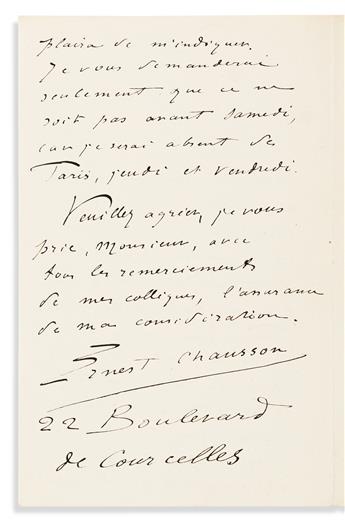 plaira de m'indiquer.
Je vous demanderai
seulement que ce ne
soit pas avant samedi,
car je serai absent de
Paris, jeudi et vendredi.
Veuillez agréer, je vous
prie, Monsieur, avec
tous les remerciements
de mes collègues, l'assurance
de ma considération.
Ernest Chausson
22 Boulevard
de Courcelles